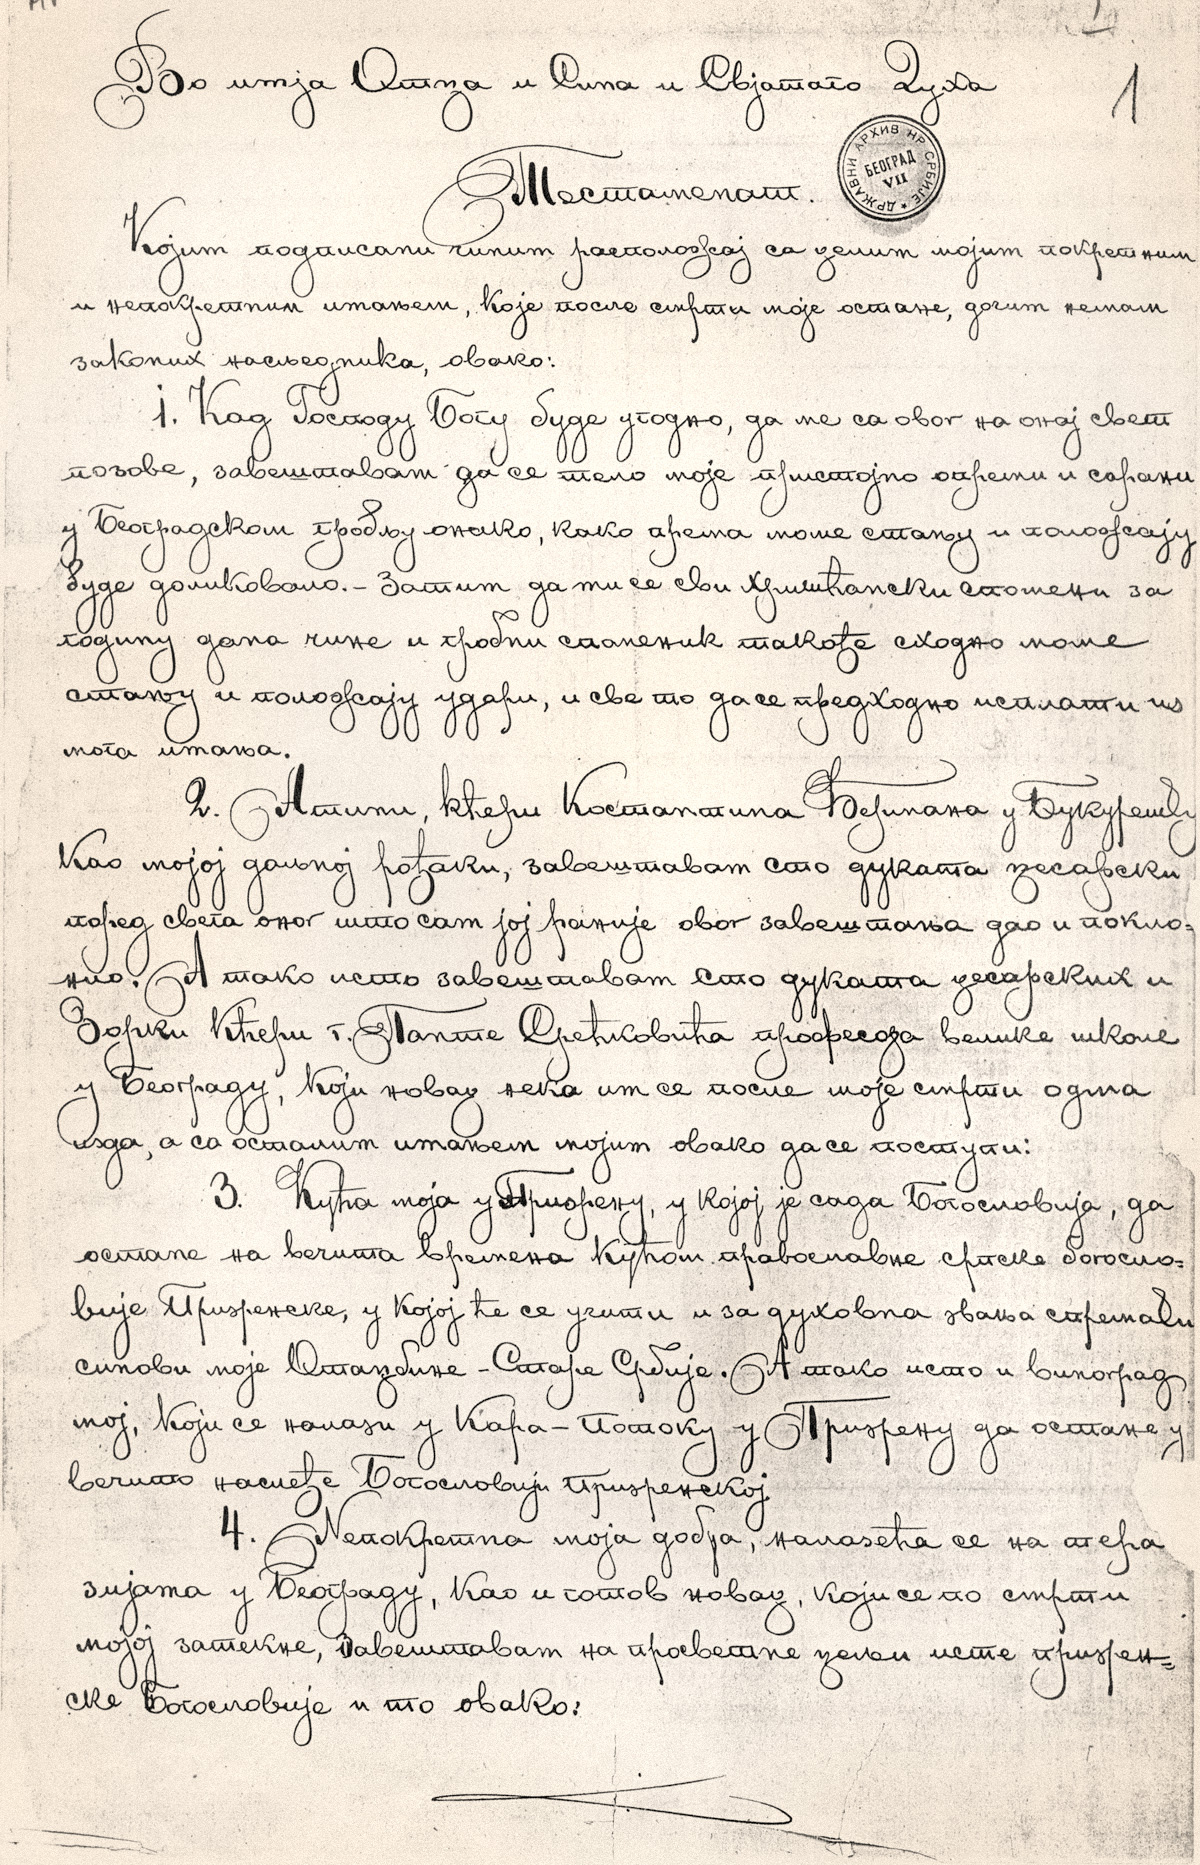 1
Во имја Отца и Сина и Свјатаго Духа
ДРЖАВНИ АРХИВ НР СРБИЈЕ
БЕОГРАД
VII
Тестаменат.
Којим подписани чиним расположај са целим мојим покретним
и непокретним имањем, које после смрти моје остане, дочим немам
законих насљедника, овако:
1. Кад Господу Богу буде угодно, да ме са овог на онај свет
позове, завештавам да се тело моје пристојно опреми и сарани
у Београдском гробљу онако, како према моме стању и положају
буде доликовало. – Затим да ми се сви хришћански спомени за
годину дана чине и гробни споменик такође сходно моме
стању и положају удари, и све то да се предходно исплати из
мога имања.
2. Атини, кћери Костантина Ђерипана у Букурешту
Као мојој даљној рођаки, завештавам сто дуката цесарски
поред свега оног што сам јој раније овог завештања дао и покло-
нио. А тако исто завештавам сто дуката цесарских и
Зорки кћери г. Панте Срећковића професора велике школе
у Београду, који новац нека им се после моје смрти одма
изда, а са осталим имањем мојим овако да се поступи:
3. Кућа моја у Призрену, у којој је сада Богословија, да
остане на вечита времена кућом православне српске богосло-
вије Призренске, у којој ће се учити и за духовна звања спремати
синови моје Отаџбине – Старе Србије. А тако исто и виноград
мој, који се налази у Кара – Потоку у Призрену да остане у
вечито наслеђе Богословији призренској
4. Непокретна моја добра, налазећа се на тера
зијама у Београду, као и готов новац, који се по смрти
мојој затекне, завештавам на просветне цељи исте призрен-
ске Богословије и то овако: